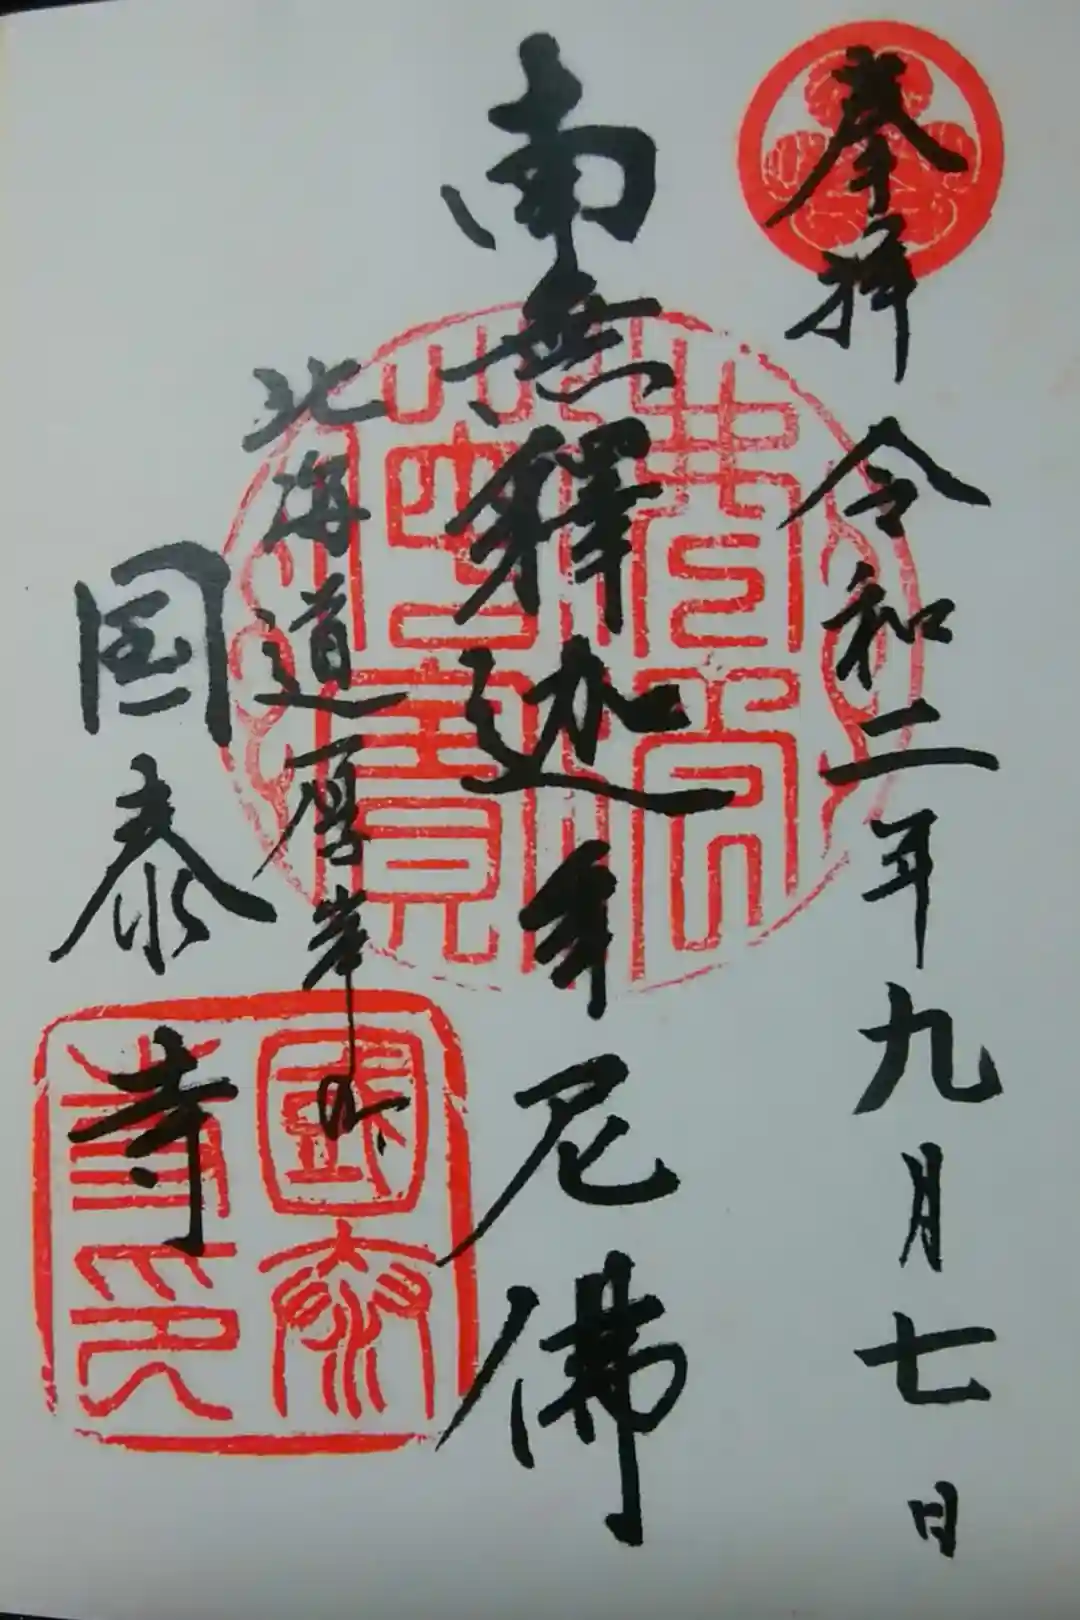 奉拝 令和二年九月七日
南無釋迦牟尼佛
北海道厚岸町
国泰寺
佛法僧寶
國泰寺印